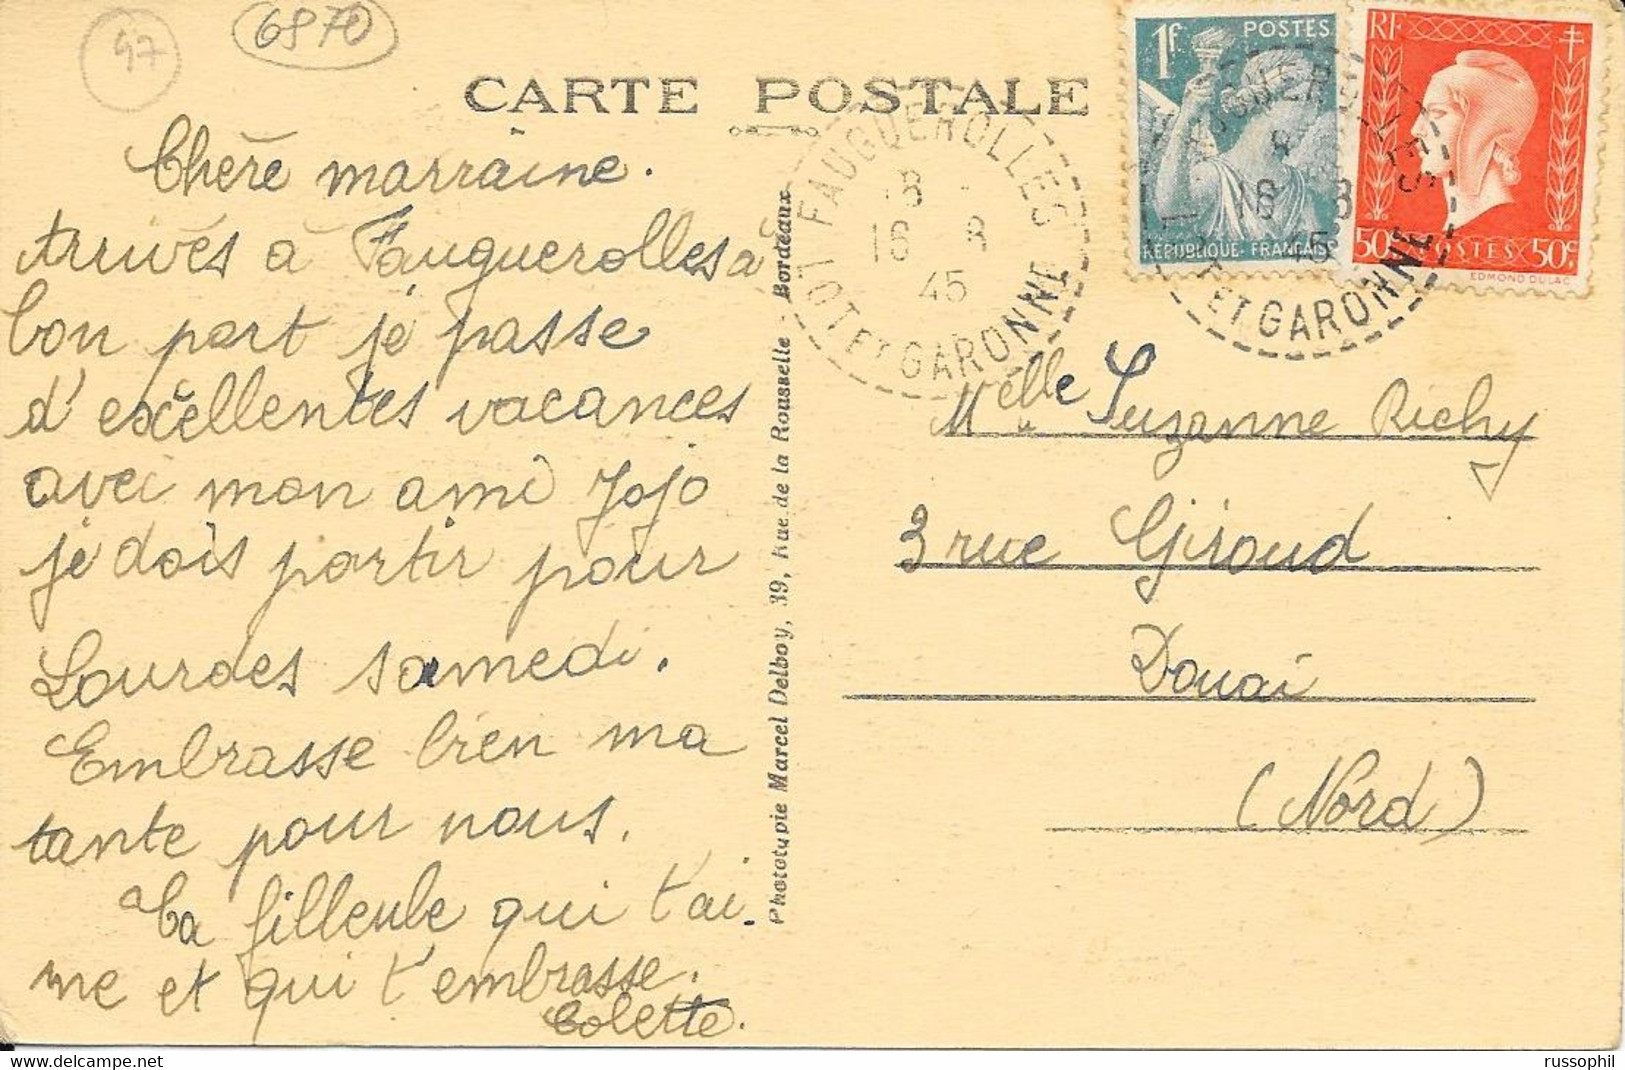 47
6870
CARTE POSTALE
Chère marraine.
Arrivés à Fauguerolles à
bon port je passe
d'excellentes vacances
avec mon ami Jojo
je dois partir pour
Lourdes samedi.
Embrasse bien ma
tante pour nous.
Ta filleule qui t'ai-
me et qui t'embrasse.
Colette.
Phototypie Marcel Delboy, 39, Rue de la Rousselle - Bordeaux
FAUGUEROLLES
18
16 - 8
45
LOT ET GARONNE
1f POSTES
REPUBLIQUE-FRANÇAISE
RF
50c POSTES 50c
EDMOND DULAC
18 8
45
ET GARONNE
Melle Suzanne Richy
3 rue Giroud
Douai
(Nord)
russophil
www.delcampe.net